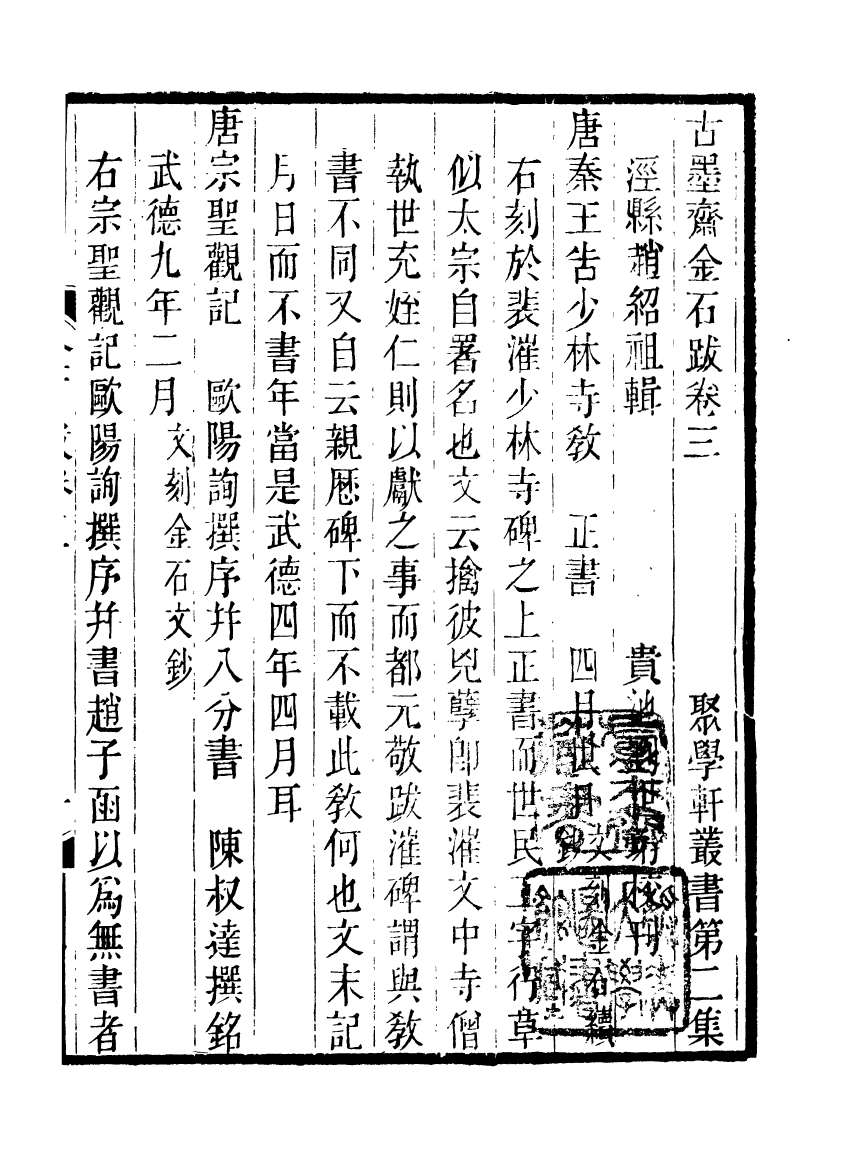 古墨齋金石跋卷三　聚學軒叢書第二集
涇縣趙紹祖輯　貴池劉世珩校刊
唐秦王告少林寺敎　正書　四月卅日　文刻金石續鈔
右刻於裴漼少林寺碑之上正書而世民二字行草
似太宗自署名也文云擒彼兇孽卽裴漼文中寺僧
執世充姪仁則以獻之事而都元敬跋漼碑謂與敎
書不同又自云親厯碑下而不載此敎何也文末記
月日而不書年當是武德四年四月耳
唐宗聖觀記　歐陽詢撰序幷八分書　陳叔達撰銘
武德九年二月　文刻金石文鈔
右宗聖觀記歐陽詢撰序幷書趙子函以爲無書者